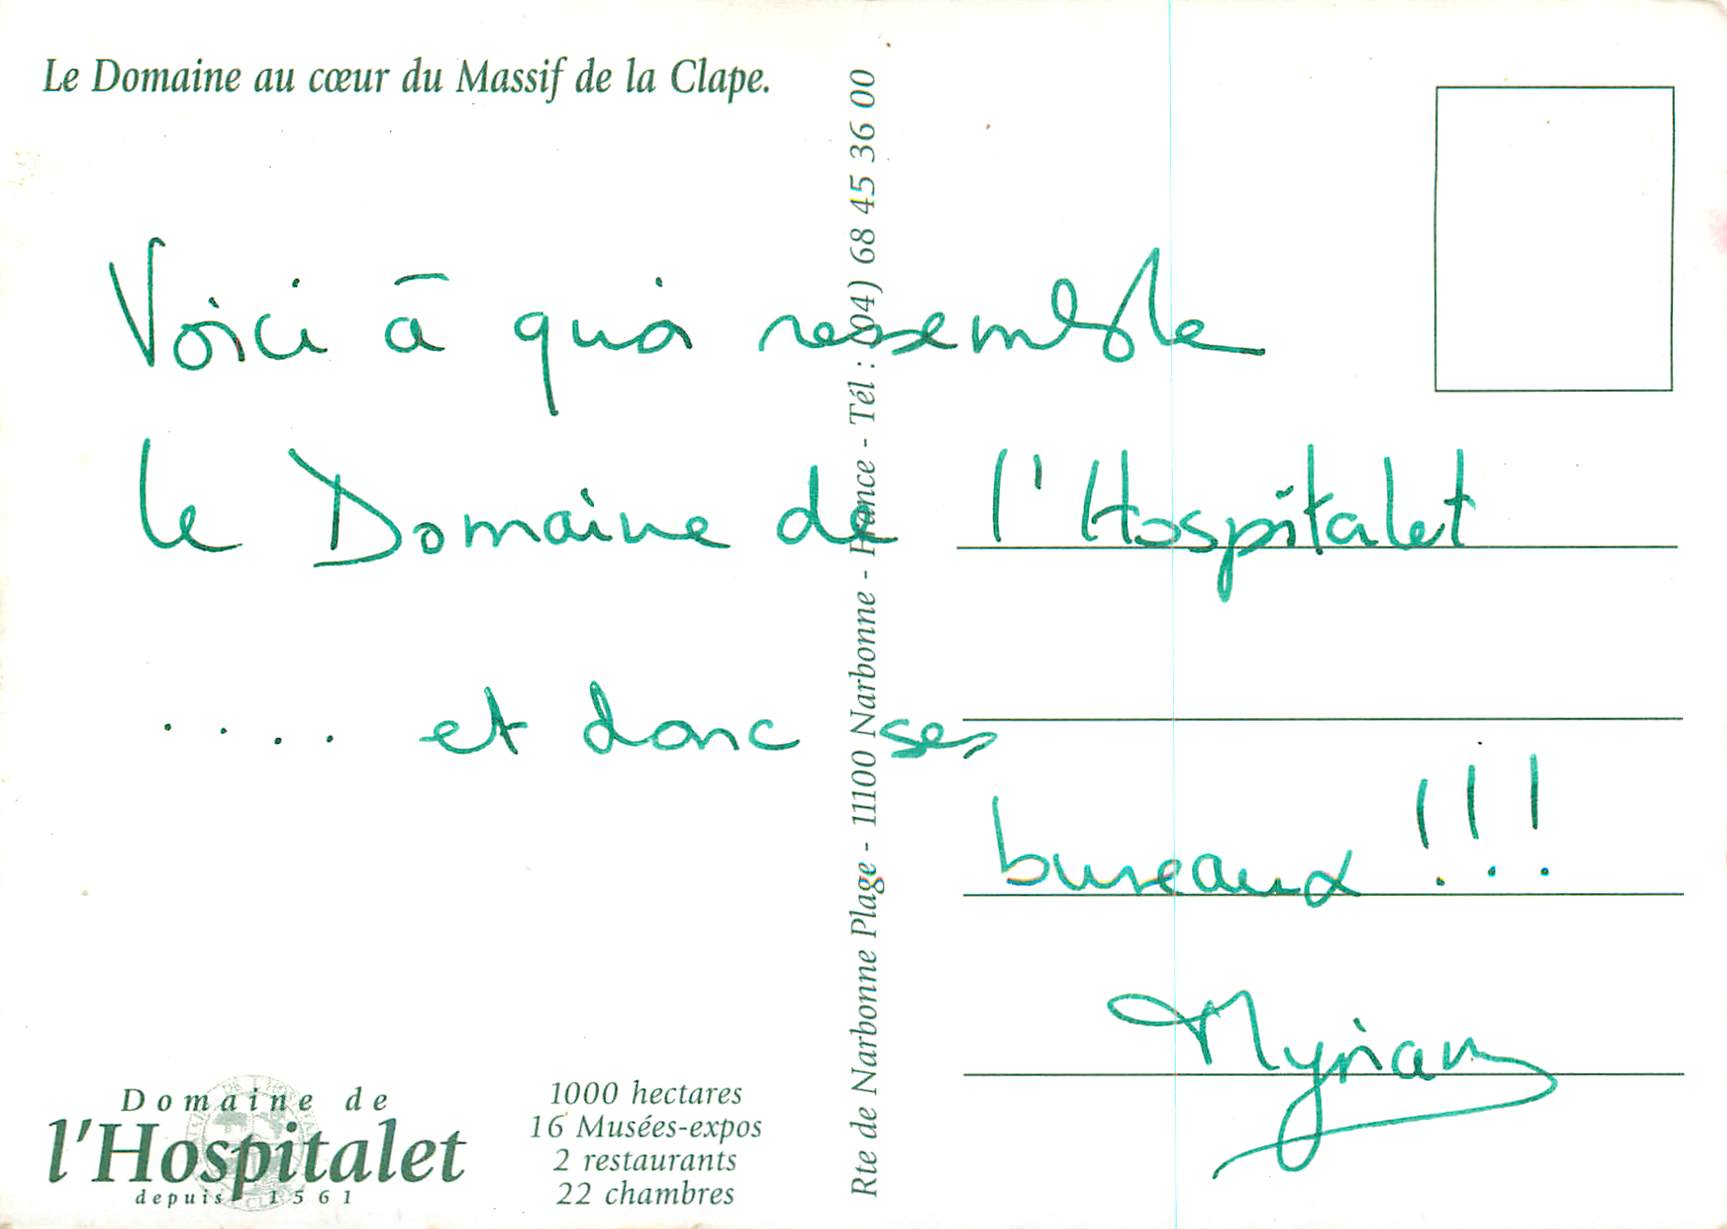 Le Domaine au cœur du Massif de la Clape.
Voici à quoi ressemble
le Domaine de l'Hospitalet
.... et donc ses
bureaux !!!
Myriam
Rte de Narbonne Plage - 11100 Narbonne - France - Tél : (04) 68 45 36 00
Domaine de
l'Hospitalet
depuis 1561
1000 hectares
16 Musées-expos
2 restaurants
22 chambres